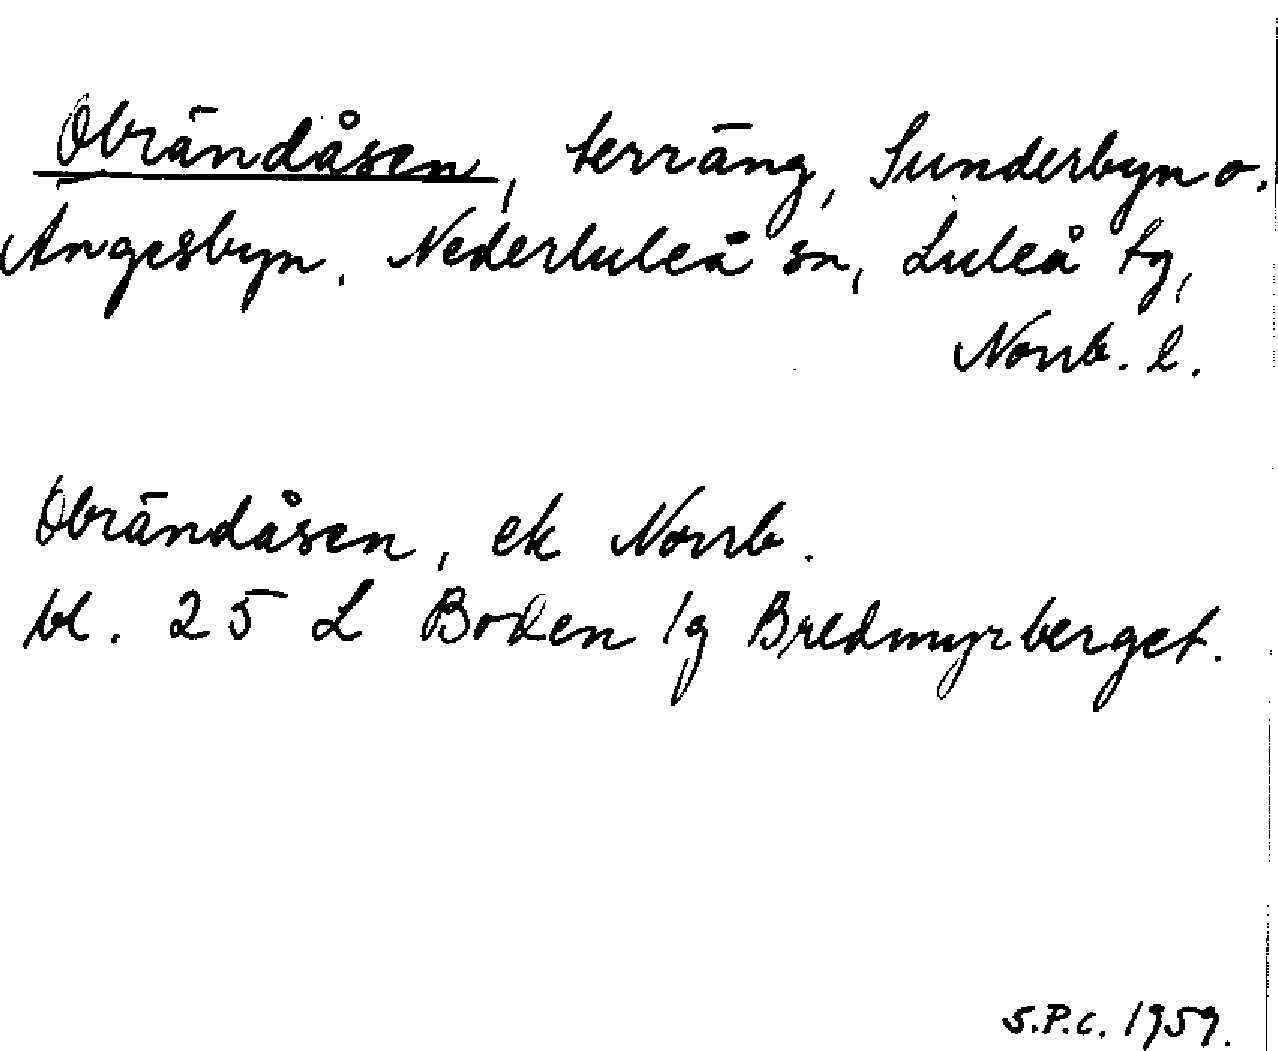 Obrändåsen, terräng, Sunderbyn o.
Ängesbyn. Nederluleå sn, Luleå tg,
Norrb. l.
Obrändåsen, ek Norrb.
bl. 25 L Boden /g Bredmyrberget.
S.P.C. 1959.